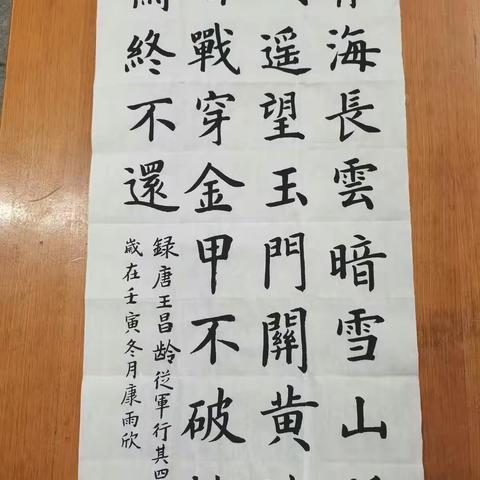 海長雲暗雪山
遥望玉門關黄
戰穿金甲不破
終不還
録唐王昌龄從軍行其四
歲在壬寅冬月康雨欣